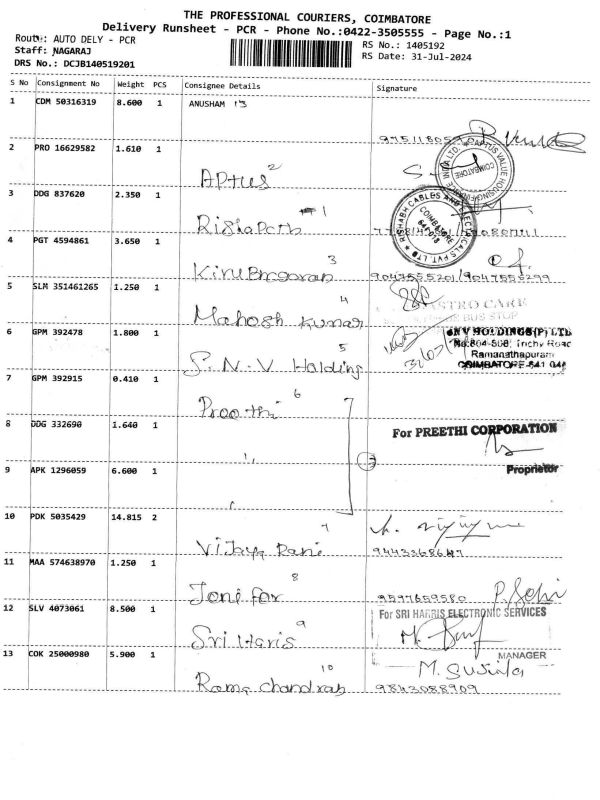 THE PROFESSIONAL COURIERS, COIMBATORE
Delivery Runsheet - PCR - Phone No.:0422-3505555 - Page No.:1
Route: AUTO DELY - PCR
Staff: NAGARAJ
DRS No.: DCJB140519201
RS No.: 1405192
RS Date: 31-Jul-2024
S No Consignment No Weight PCS Consignee Details Signature
1 CDM 50316319 8.600 1 ANUSHAM 13
2 PRO 16629582 1.610 1
Aptus 2
APTUS VALUE HOUSING FINANCE INDIA LTD.
COIMBATORE
3 DDG 837620 2.350 1
Rishapth 1
RISHABH CABLES AND ELECTRICALS PVT. LTD
COIMBATORE
4 PGT 4594861 3.650 1
Kirubagaran 3
9047555201/9047555299
5 SLM 351461265 1.250 1
Mahesh Kumar 4
ASTRO CARE
BUS STOP
6 GPM 392478 1.800 1
S.N.V Holding 5
SNV HOLDINGS(P) LTD
No:804-808, Trichy Road
Ramanathapuram
COIMBATORE-641 045
7 GPM 392915 0.410 1
Preethi 6
8 DDG 332690 1.640 1
For PREETHI CORPORATION
Proprietor
,,
3
9 APK 1296059 6.600 1
10 PDK 5035429 14.815 2
Vijaya Rani 7
9443368647
11 MAA 574638970 1.250 1
Jenifar 8
9597659580
12 SLV 4073061 8.500 1
For SRI HARRIS ELECTRONIC SERVICES
Sri Haris 9
MANAGER
13 COK 25000980 5.900 1
M. Sujita
Rama chandran 10
9843088909